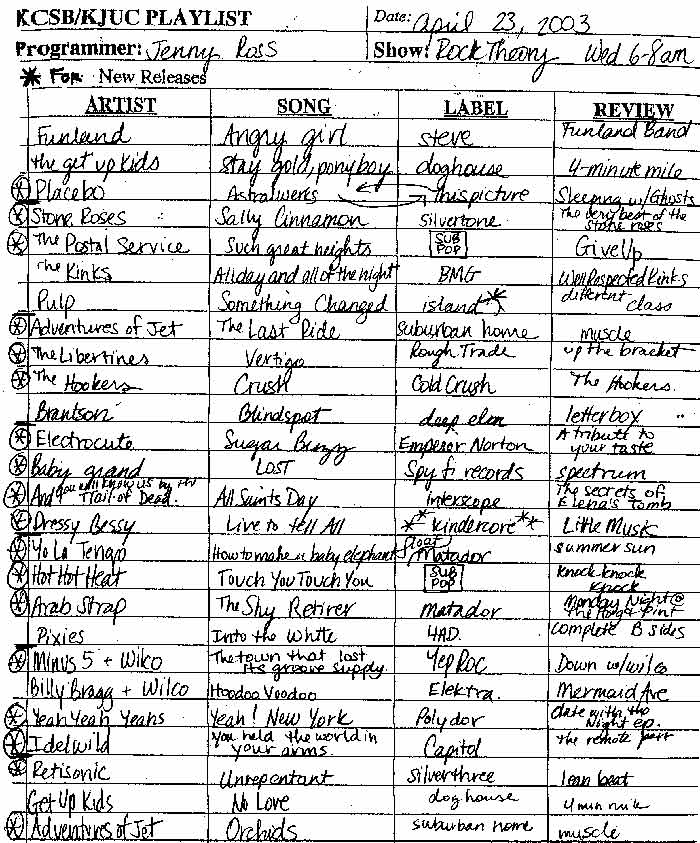 KCSB/KJUC PLAYLIST Date: April 23, 2003
Programmer: Jenny Ross Show: Rock Theory Wed 6-8am
* FOR New Releases
ARTIST SONG LABEL REVIEW
Funland Angry girl steve Funland Band
The get up kids stay gold, ponyboy doghouse 4-minute mile
* Placebo Astralwerks this picture Sleeping w/Ghosts
* Stone Roses Sally Cinnamon Silvertone The very best of the stone roses
* The Postal Service Such great heights SUB POP Give Up
The Kinks All day and all of the night BMG Well Respected Kinks
Pulp Something Changed island * different class
* Adventures of Jet The Last Ride suburban home muscle
* The Libertines Vertigo Rough Trade up the bracket
* The Hookers Crush Cold Crush The Hookers.
Brantson Blindspot deep elm letterbox "
* Electrocute Sugar Buzz Emperor Norton A tribute to your taste
* Baby grand LOST Spy fi records spectrum
* And you will know us by the Trail of Dead. All Saints Day interscope The secrets of Elena's Tomb
* Dressy Bessy Live to tell All ** Kindercore ** Little Music
* Yo La Tengo How to make a baby elephant float Matador summer sun
* Hot Hot Heat Touch You Touch You SUB POP Knock Knock Knock
* Arab Strap The Shy Retirer Matador Monday Night @ the Hug & Pint
Pixies Into the White 4AD. complete B sides
* Minus 5 + Wilco The town that lost its groove supply Yep Roc Down w/wilco
Billy Bragg + Wilco Hoodoo Voodoo Elektra. Mermaid Ave
* Yeah Yeah Yeahs Yeah! New York Polydor date with the Night ep.
* Idelwild You held the world in your arms. Capitol the remote part
* Retisonic Unrepentant silverthree lean beat
Get Up Kids No Love doghouse 4 min mile
* Adventures of Jet Orchids suburban home muscle